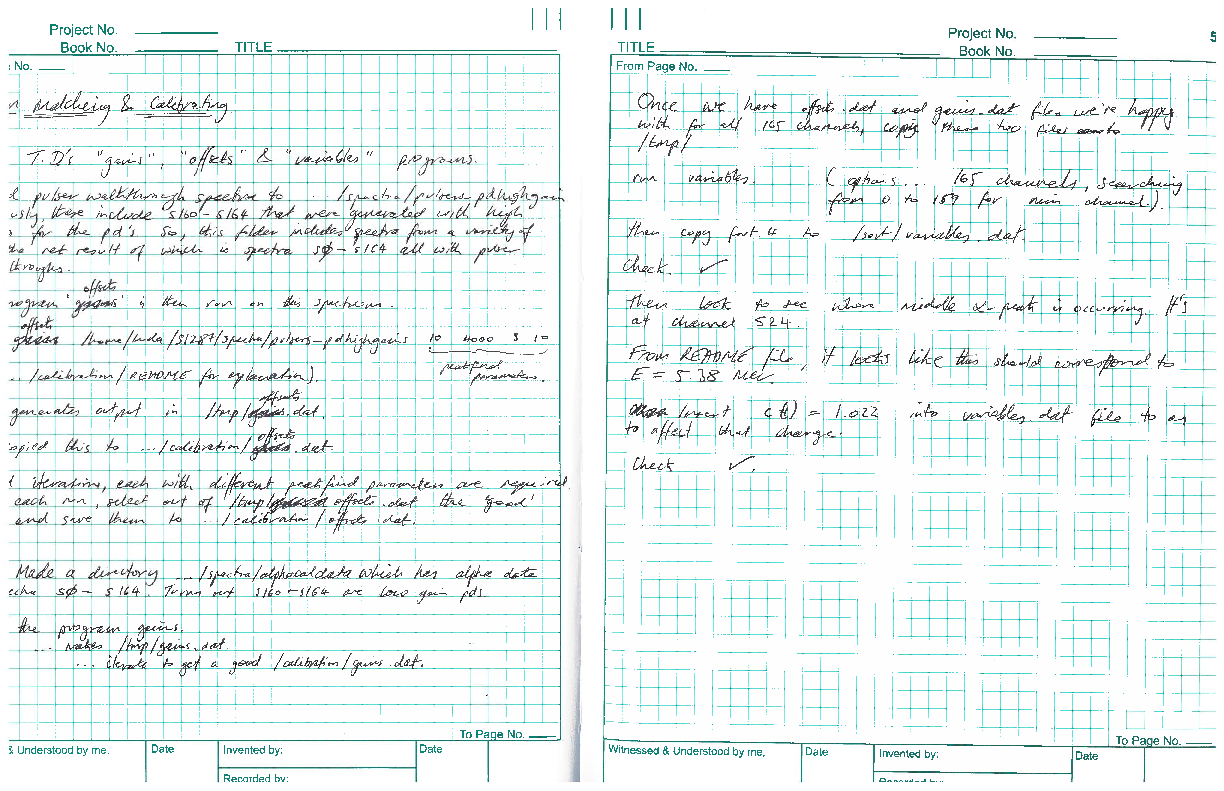 Project No.
Book No. TITLE
No.
Matching & Calibrating
T.D's "gains", "offsets" & "variables" programs.
pulser walkthrough spectra to .../spectra/pulsers_pdhighgain
usly, these include s160-s164 that were generated with high
for the pd's. So, this folder includes spectra from a variety of
the net result of which is spectra sφ-s164 all with pulser
throughs.
offsets
rogram ' ' is then run on this spectrum.
offsets
/home/ /S1287/spectra/pulsers_pdhighgains 10 4000 5 10
peakfind
parameters.
.../calibration/README for explanation).
offsets
generates output in /tmp/gains.dat.
offsets
opied this to .../calibration/gains.dat.
iterations, each with different peakfind parameters are required.
each run, select out of /tmp/ offsets.dat the 'good'
and save them to .../calibration/offsets.dat.
Made a directory .../spectra/alphacaldata which has alpha data
sφ-s164. Turns out s160-s164 are low gain pds
the program gains.
... makes /tmp/gains.dat.
... iterate to get a good /calibration/gains.dat.
To Page No.
& Understood by me, Date Invented by: Date
Recorded by:
Project No.
TITLE Book No.
5
From Page No.
Once we have offsets.dat and gains.dat files we're happy
with for all 165 channels, copy these two files to
/tmp/
run variables. (options... 165 channels, searching
from 0 to 159 for min channel).
then copy fort.4 to /sort/variables.dat.
Check. ✓
Then look to see where middle α-peak is occurring. It's
at channel 524.
From README file, it looks like this should correspond to
E = 5.38 MeV.
Insert c(1) = 1.022 into variables.dat file to
to affect that change.
Check ✓.
To Page No.
Witnessed & Understood by me, Date Invented by: Date
Recorded by: